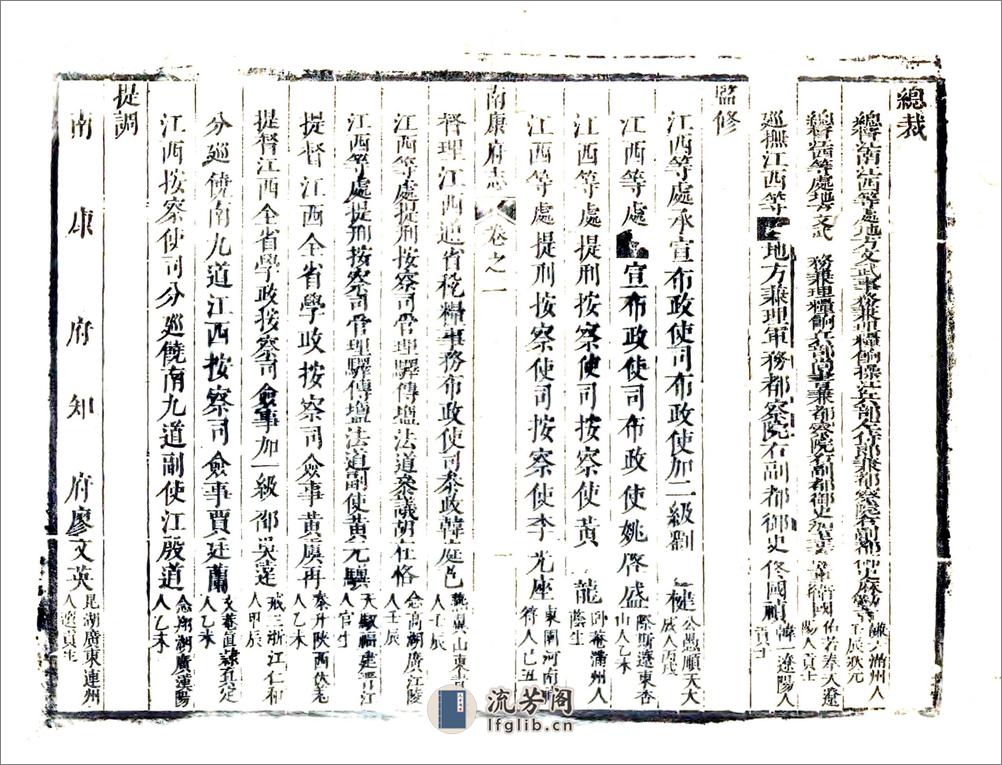 總裁
總督江南江西等處地方文武事務兼理糧餉操江兵部左侍郎兼都察院右副都御史麻勒吉 滿洲人壬辰狀元
總督江西等處地方文武 務兼理糧餉兵部尚書兼都察院右副都御史 國佑若奉天遼陽人貢士
巡撫江西等 地方兼理軍務都察院右副都御史佟國禎 韓一遼陽人貢士
監修
江西等處承宣布政使司布政使加二級劉 楗 公愚順天大城人丙戌
江西等處 宣布政使司布政使姚啓盛 際斯遼東杏山人乙未
江西等處提刑按察使司按察使黃 龍 卧菴滿洲人蔭生
江西等處提刑按察使司按察使李光座 東園河南 符人己丑
南康府志 卷之一
督理江西通省稅糧事務布政使司參政韓庭芑 山東青 人壬辰
江西等處提刑按察司管理驛傳塩法道叅議胡在恪 念蒿湖廣江陵人壬辰
江西等處提刑按察司管理驛傳塩法道副使黃元驥 天馭福建晋江人官生
提督江西全省學政按察司僉事黃虞再 泰升陝西伏羌人乙未
提督江西全省學政按察司僉事加一級邵吳遠 戒三浙江仁和人甲辰
分巡饒南九道江西按察司僉事賈廷蘭 文菴直隸真定人乙未
江西按察使司分巡饒南九道副使江殷道 念翔湖廣漢陽人乙未
提調
南康府知府廖文英 昆湖廣東連州人選貢生
流芳阁
lfglib.cn